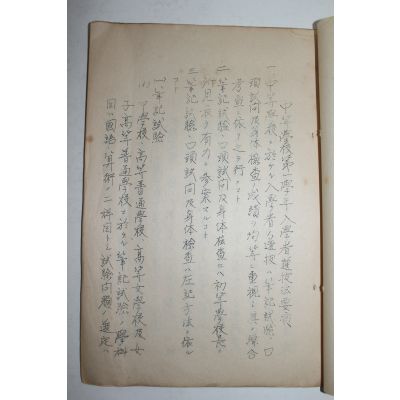 中等學校第一學年入學者選拔法要項
一、中等學校ニ於ケル入學者ノ選拔ハ筆記試驗、口
頭試問及身体檢査ノ成績ヲ均等ニ重視シ其ノ綜合
考査ニ依リ之ヲ行フコト
二、筆記試驗、口頭試問及身体檢査ニハ初等學校長ノ
所見ヲ有力ナル參案スルコト
三、筆記試驗、口頭試問及身体檢査ハ左記方法ニ依ル
コト
(一)筆記試驗
(イ)中學校、高等普通學校、高等女學校及女
子高等普通學校ニ於ケル筆記試驗ノ學科
目ハ國語、算術ノ二科目トシ試驗問題ノ選定ハ